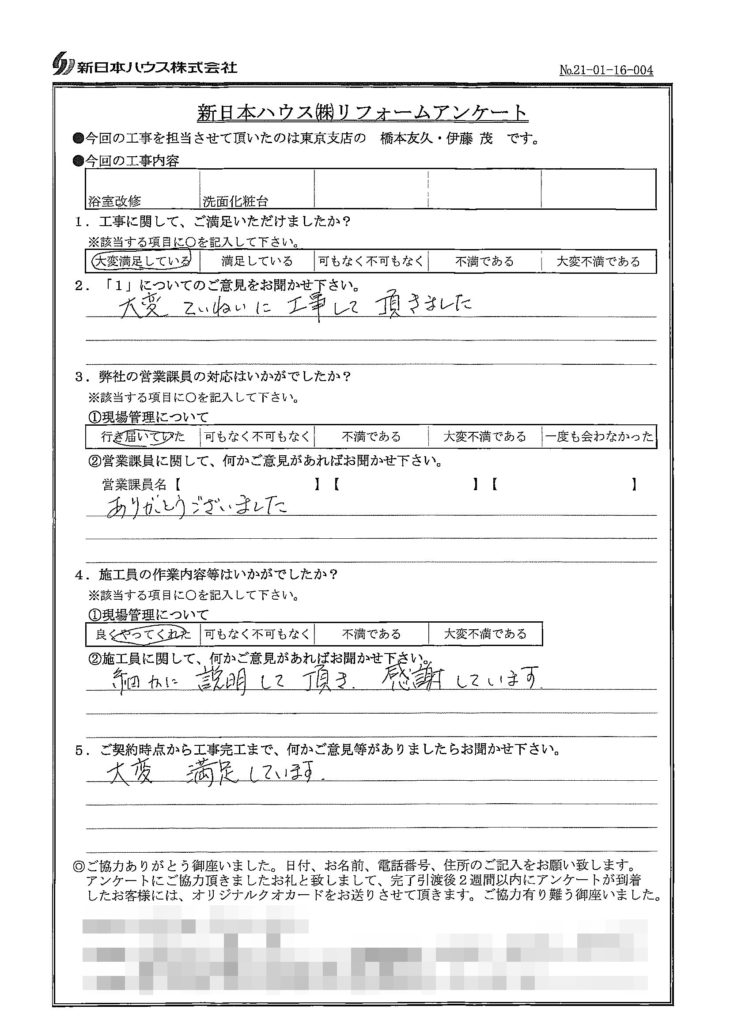 新日本ハウス株式会社
No.21-01-16-004
新日本ハウス㈱リフォームアンケート
●今回の工事を担当させて頂いたのは東京支店の 橋本友久・伊藤 茂 です。
●今回の工事内容
浴室改修 洗面化粧台
1．工事に関して、ご満足いただけましたか？
※該当する項目に○を記入して下さい。
大変満足している 満足している 可もなく不可もなく 不満である 大変不満である
2．「1」についてのご意見をお聞かせ下さい。
大変 ていねいに 工事して 頂きました
3．弊社の営業課員の対応はいかがでしたか？
※該当する項目に○を記入して下さい。
①現場管理について
行き届いていた 可もなく不可もなく 不満である 大変不満である 一度も会わなかった
②営業課員に関して、何かご意見があればお聞かせ下さい。
営業課員名【 】【 】【 】
ありがとうございました
4．施工員の作業内容等はいかがでしたか？
※該当する項目に○を記入して下さい。
①現場管理について
良くやってくれた 可もなく不可もなく 不満である 大変不満である
②施工員に関して、何かご意見があればお聞かせ下さい。
細かに 説明して 頂き、感謝しています。
5．ご契約時点から工事完工まで、何かご意見等がありましたらお聞かせ下さい。
大変 満足しています。
◎ご協力ありがとう御座いました。日付、お名前、電話番号、住所のご記入をお願い致します。
アンケートにご協力頂きましたお礼と致しまして、完了引渡後２週間以内にアンケートが到着
したお客様には、オリジナルクオカードをお送りさせて頂きます。ご協力有り難う御座いました。